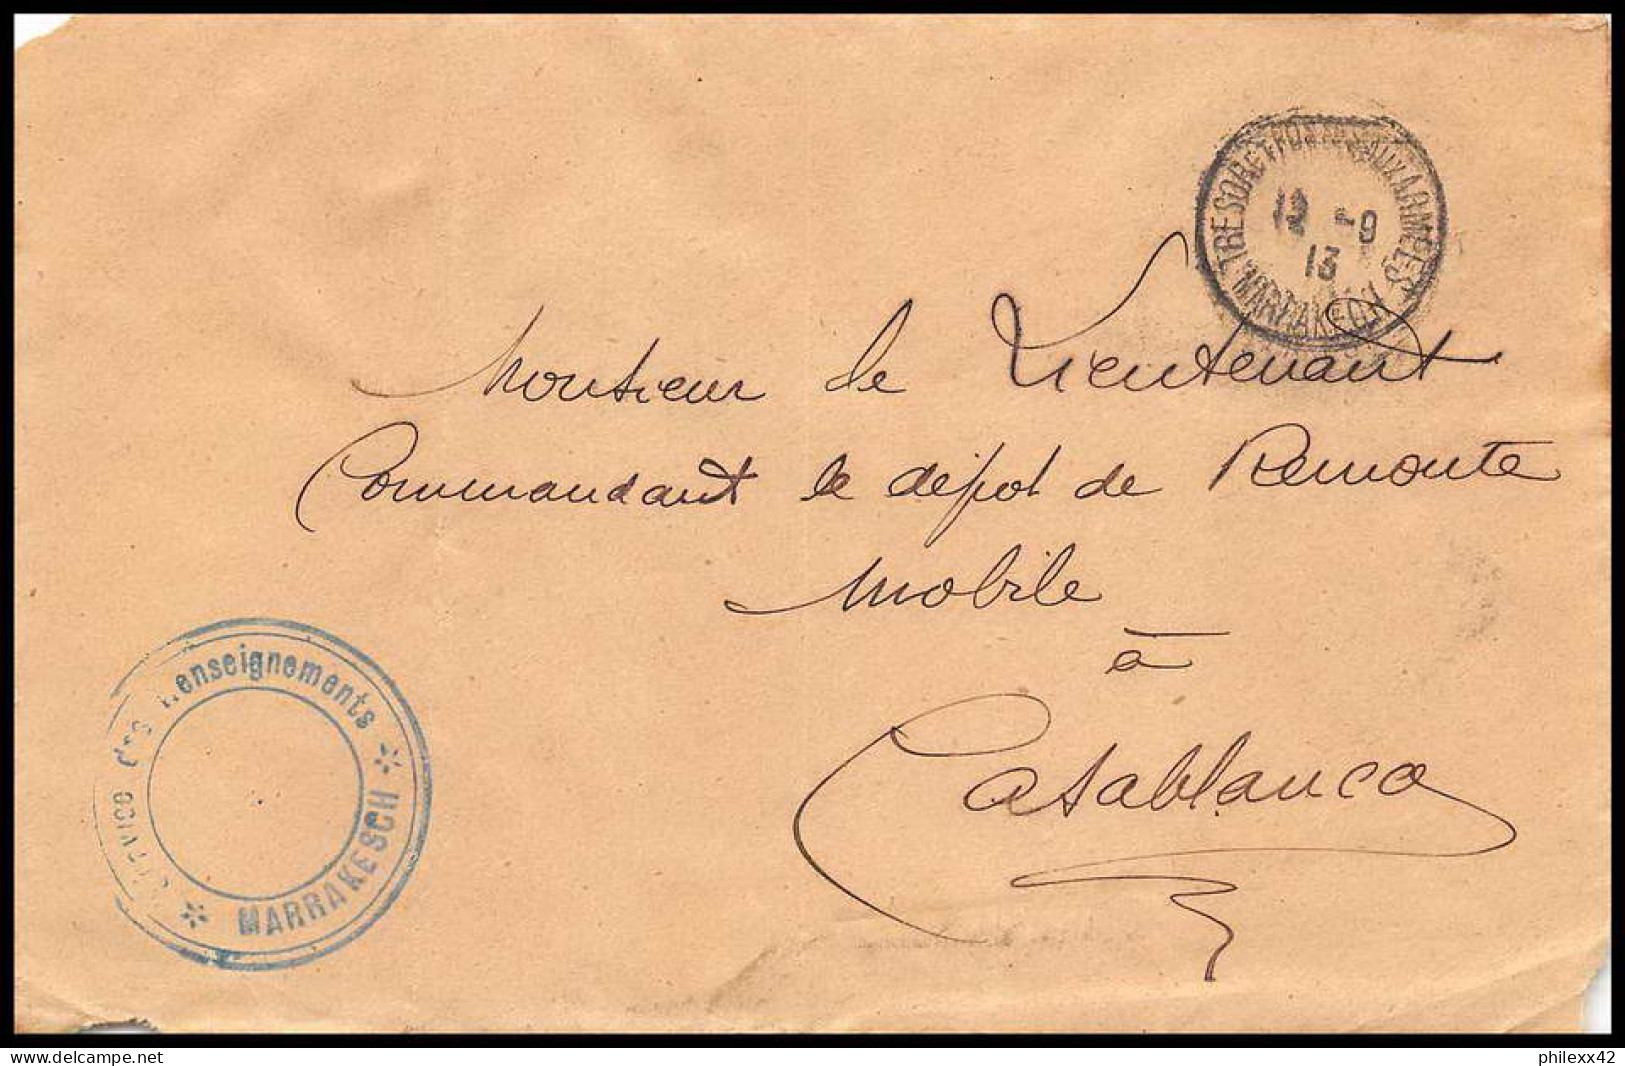 TRESOR ET POSTES AUX ARMEES
12 -9
13
MARRAKECH
Monsieur le Lieutenant
Commandant le dépot de Remonte
Mobile
à
Casablanca
Service des Renseignements
MARRAKESCH
www.delcampe.net
philexx42